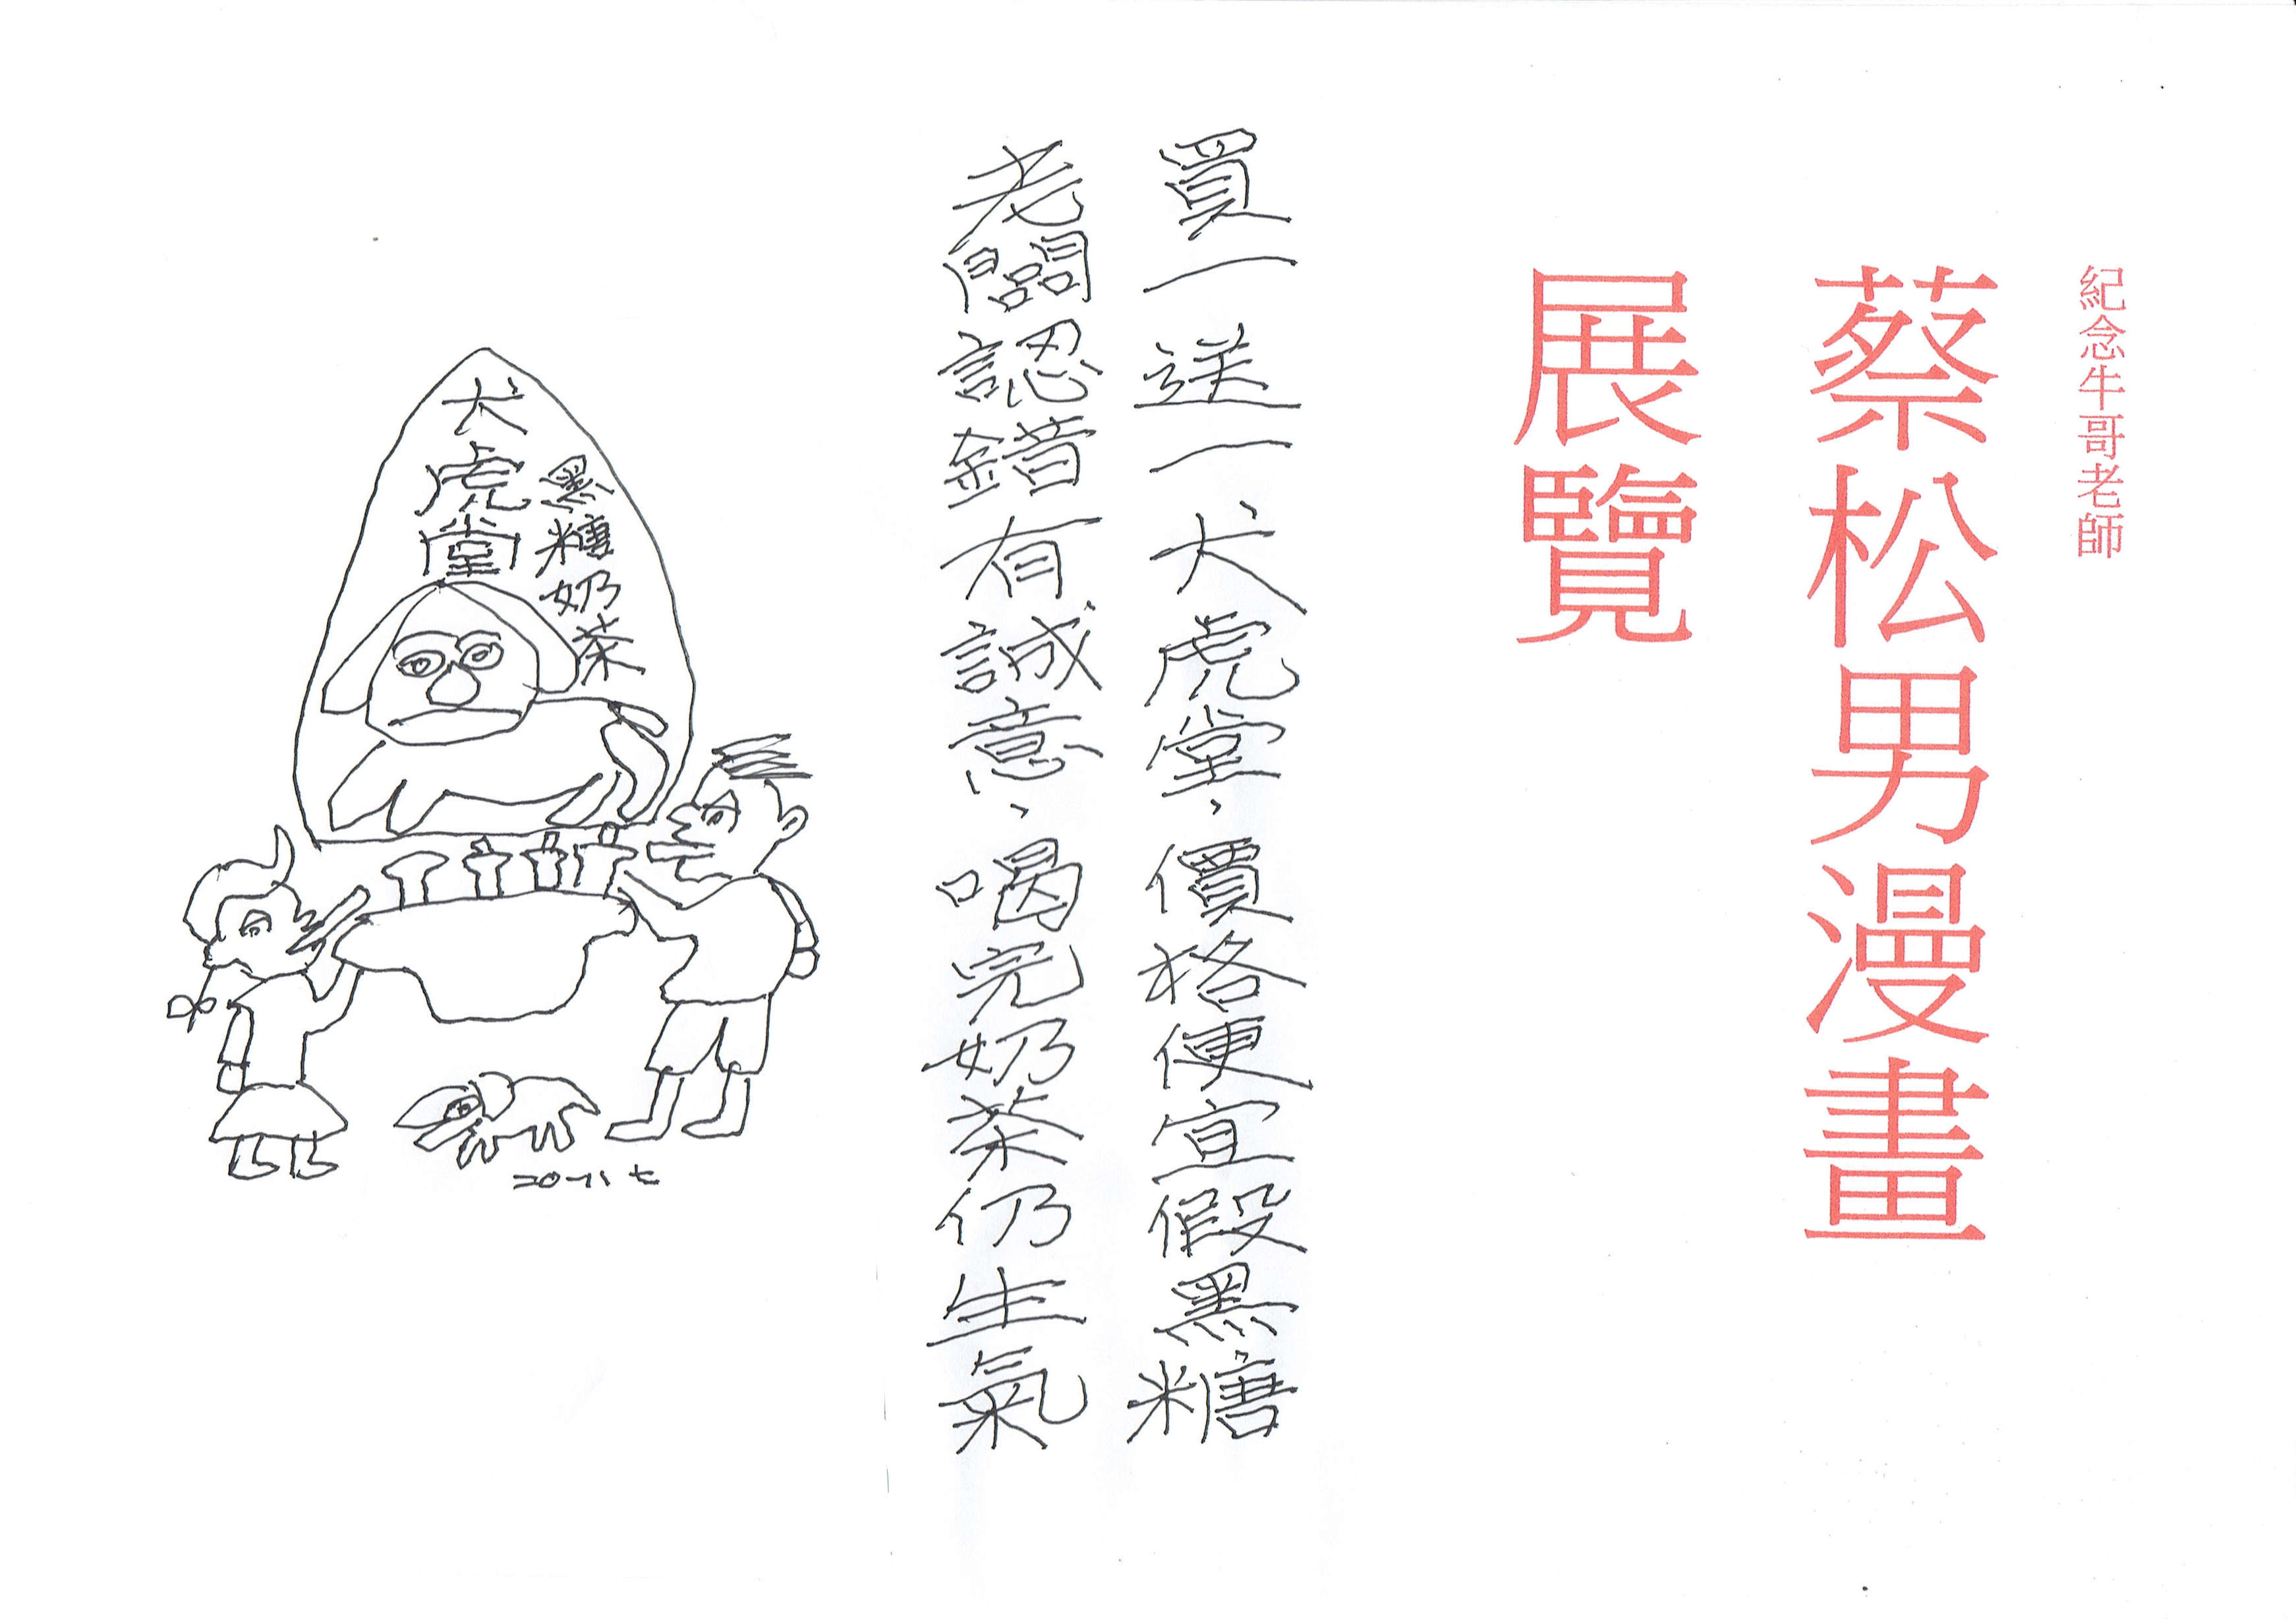 紀念牛哥老師
蔡松男漫畫
展覽
買一送一犬虎堂，價格便宜假黑糖
老闆認錯有誠意，喝完奶茶仍生氣
黑糖奶茶
犬虎堂